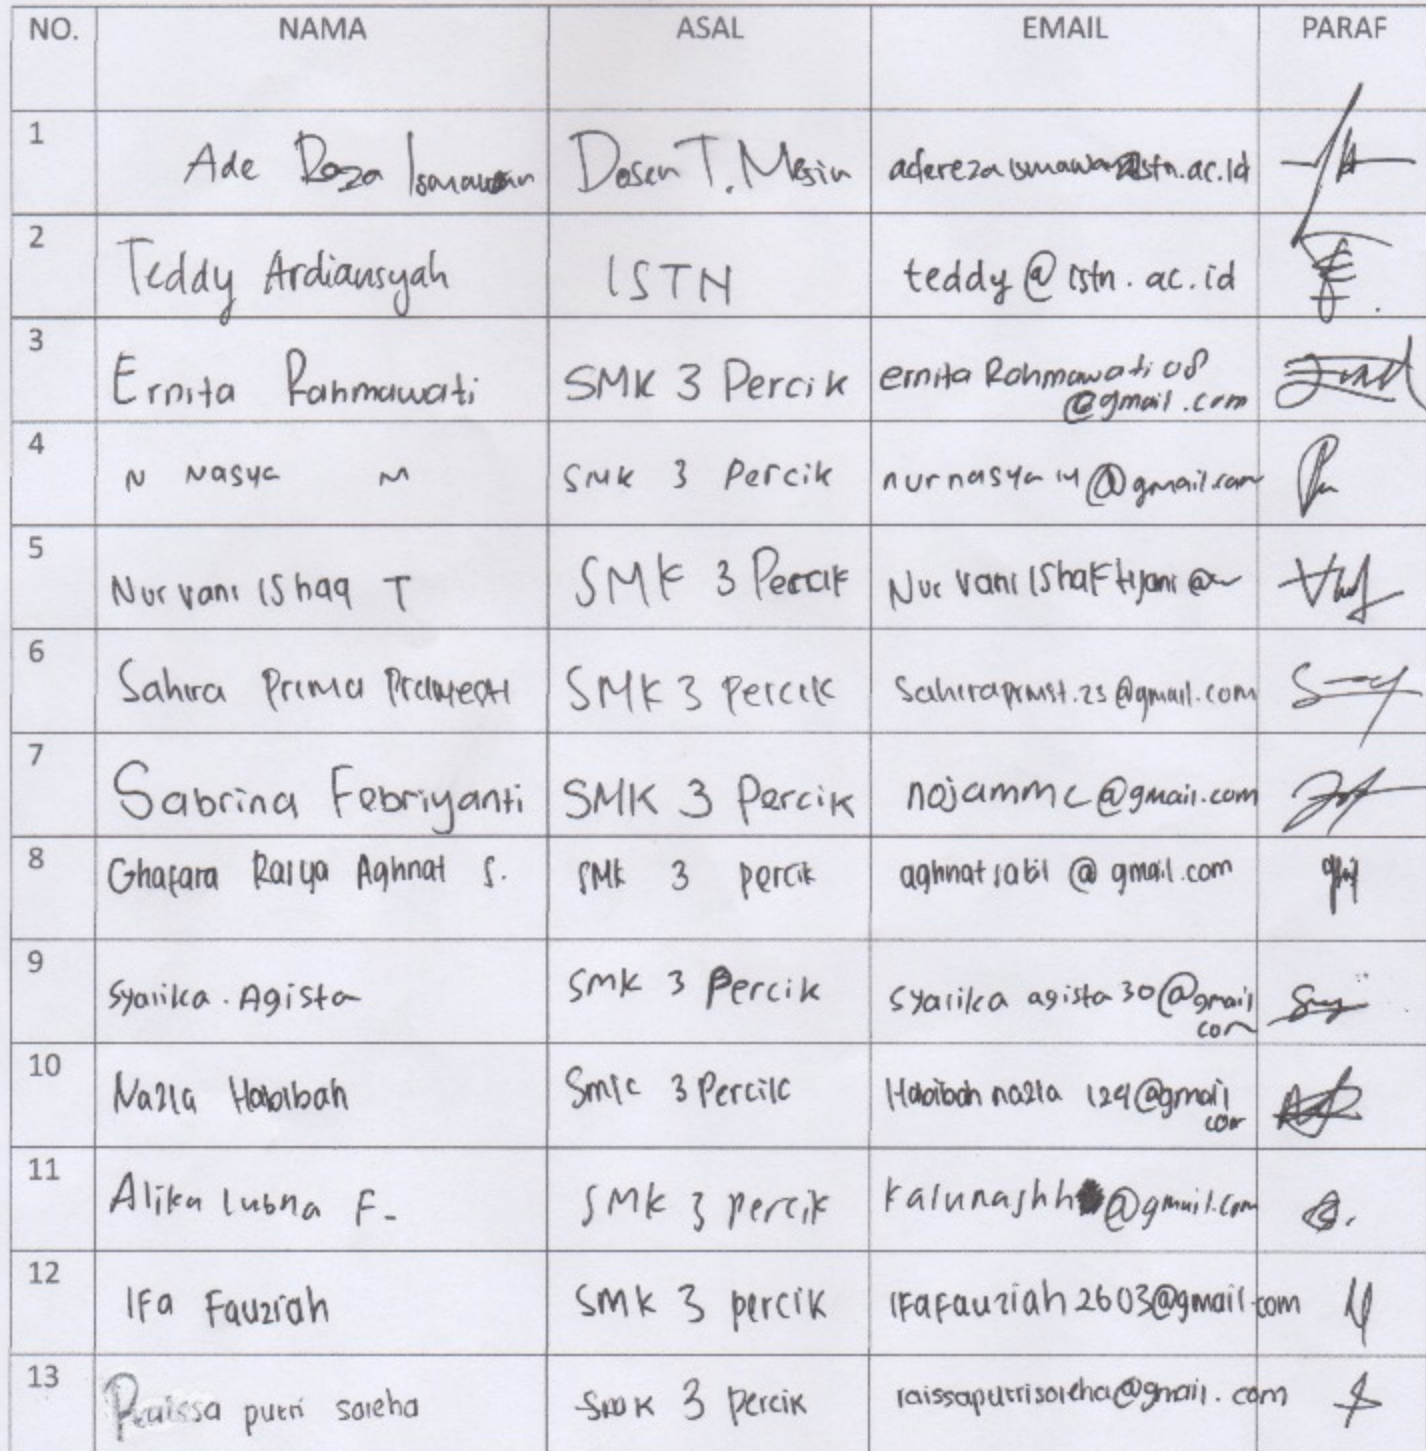 NO. NAMA ASAL EMAIL PARAF
1 Ade Reza Ismawan Dosen T. Mesin aderezaismawan@istn.ac.id
2 Teddy Ardiansyah ISTN teddy@istn.ac.id
3 Ernita Rahmawati SMK 3 Percik ernita Rahmawati 08
@gmail.com
4 N Nasya M SMK 3 Percik nurnasya M@gmail.com
5 Nur vani IShaq T SMK 3 Percik Nur vani IShak tijani @
6 Sahira Prima SMK 3 percik sahiraprmst.23@gmail.com
7 Sabrina Febriyanti SMK 3 Percik nojammc@gmail.com
8 Ghafara Rasya Aghnat S. SMK 3 percik aghnatsabil @ gmail.com
9 Syarika . Agista SMK 3 Percik syarika agista 30@gmail
com
10 Nazla Habibah SMK 3 Percik Habibah nazla 129@gmail
com
11 Alika lubna F. SMK 3 percik kalunashh@gmail.com
12 IFa Fauziah SMK 3 percik IFaFauziah2603@gmail.com
13 Raissa putri soleha SMK 3 percik raissaputrisoleha@gmail.com